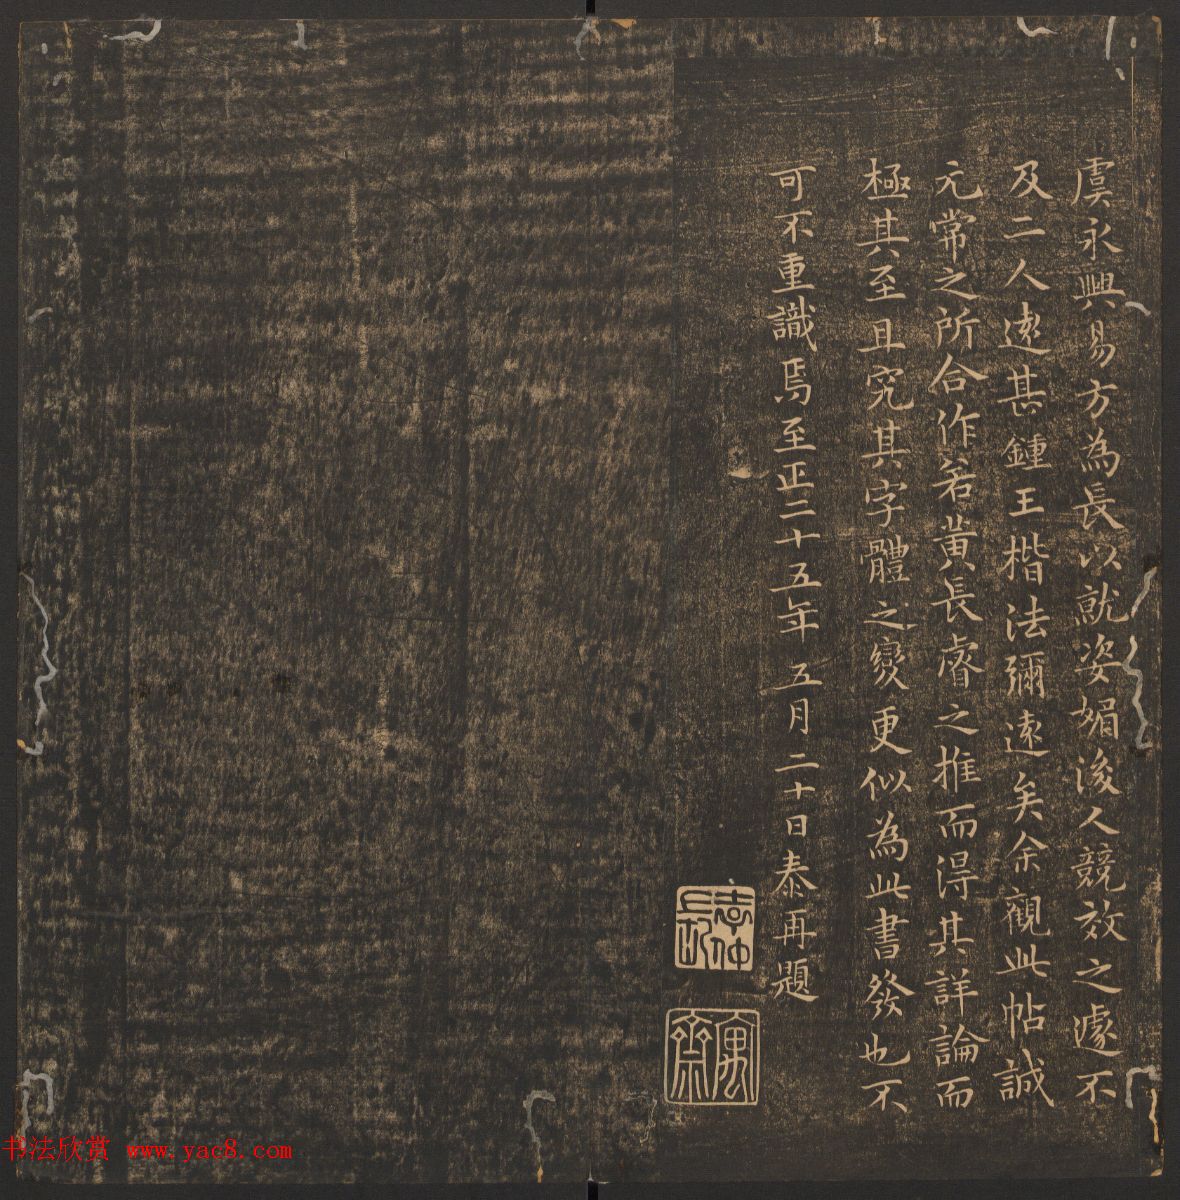 虞永興易方為長以就姿媚後人競效之遽不
及二人遠甚鍾王楷法彌遠矣余觀此帖誠
元常之所合作若黄長睿之推而得其詳論而
極其至且究其字體之變更似為此書發也不
可不重識焉至正二十五年五月二十日泰再題
書法欣賞 www.yac8.com